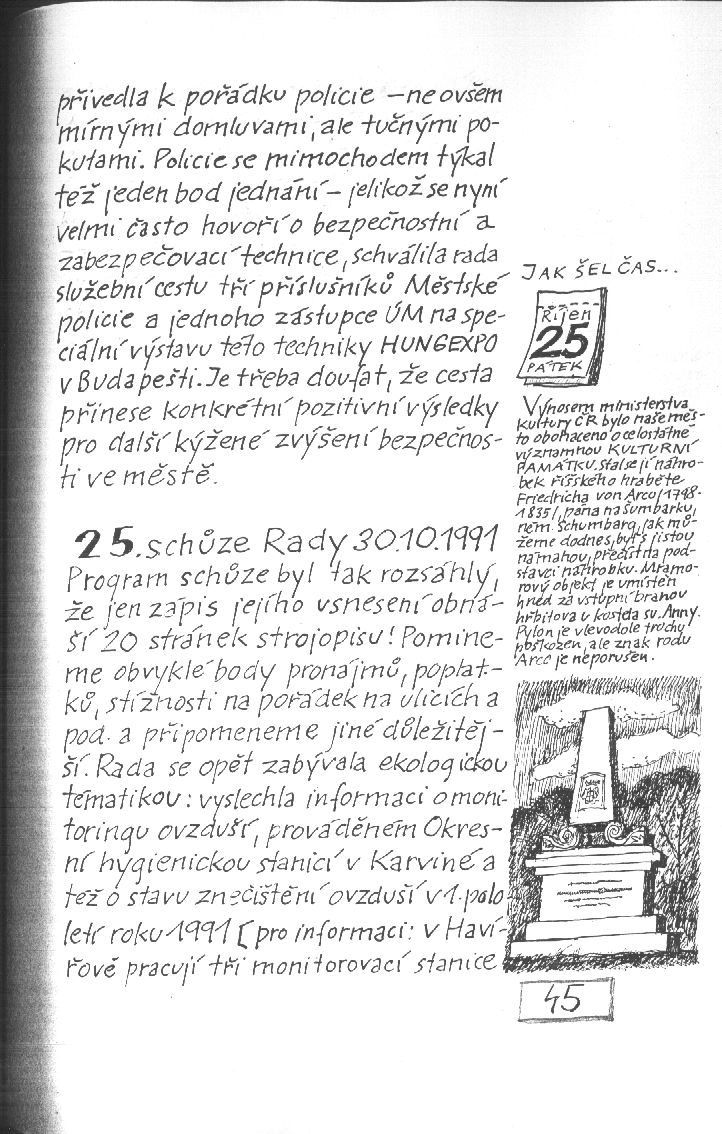 přivedla k pořádku policie – ne ovšem
mírnými domluvami, ale tučnými po-
kutami. Policie se mimochodem týkal
též jeden bod jednání – jelikož se nyní
velmi často hovoří o bezpečnostní a
zabezpečovací technice, schválila rada
služební cestu tří příslušníků Městské
policie a jednoho zástupce ÚM na spe-
ciální výstavu této techniky HUNGEXPO
v Budapešti. Je třeba doufat, že cesta
přinese konkrétní pozitivní výsledky
pro další kýžené zvýšení bezpečnos-
ti ve městě.
25. schůze Rady 30.10.1991
Program schůze byl tak rozsáhlý,
že jen zápis jejího usnesení obná-
ší 20 stránek strojopisu! Pomine-
me obvyklé body pronájmů, poplat-
ků, stížností na pořádek na ulicích a
pod. a připomeneme jiné důležitěj-
ší. Rada se opět zabývala ekologickou
tématikou: vyslechla informaci o moni-
toringu ovzduší, prováděném Okres-
ní hygienickou stanicí v Karviné a
též o stavu znečištění ovzduší v 1. polo-
letí roku 1991 [pro informaci: v Haví-
řově pracují tři monitorovací stanice
JAK ŠEL ČAS...
Říjen
25
PÁTEK
Výnosem ministerstva
kultury ČR bylo naše měs-
to obohaceno o celostátně
významnou KULTURNÍ
PAMÁTKU. Stal se jí náhro-
bek říšského hraběte
Friedricha von Arco /1798-
1835/, pána na Šumbarku,
něm. Schumbarg, jak mů-
žeme dodnes, byť s jistou
námahou, přečíst na pod-
stavci náhrobku. Mramo-
rový objekt je umístěn
hned za vstupní branou
hřbitova u kostela sv. Anny.
Pylon je vlevo dole trochu
poškozen, ale znak rodu
Arco je neporušen.
45